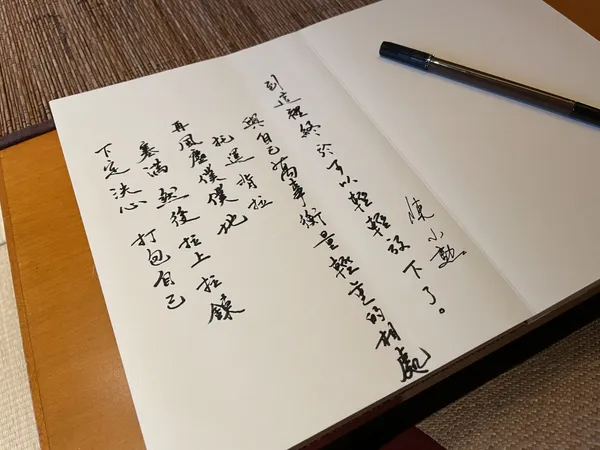 下定決心 打包自己
塞滿 然後拉上拉鍊
再風塵僕僕地
托運 背拉
與自己萬事衡量輕重的相處
到這裡終於可以輕輕放下了。
陳小